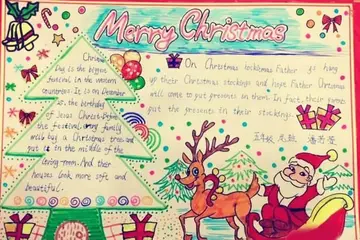 Merry Christmas
Christmas
Day is the biggest
festival in the western
countries. It is on December
is the birthday
of Jesus Christ. Before
the festival, every family
will buy a Christmas tree and
put it in the middle of the
living-room. And their
houses look more soft and
beautiful.
On Christmas Father hang
up their Christmas stockings and hope Father Christmas
will come to put presents in them. In fact, their parents
put the presents in their stockings.
五年级